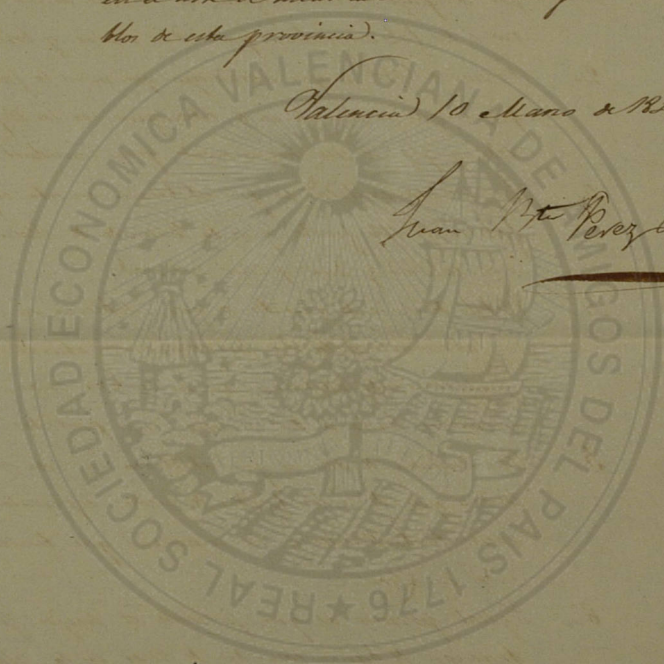 blos de esta provincia.
Valencia 10 Marzo de 18
Juan Bta Perez
REAL SOCIEDAD ECONOMICA VALENCIANA DE AMIGOS DEL PAIS 1776